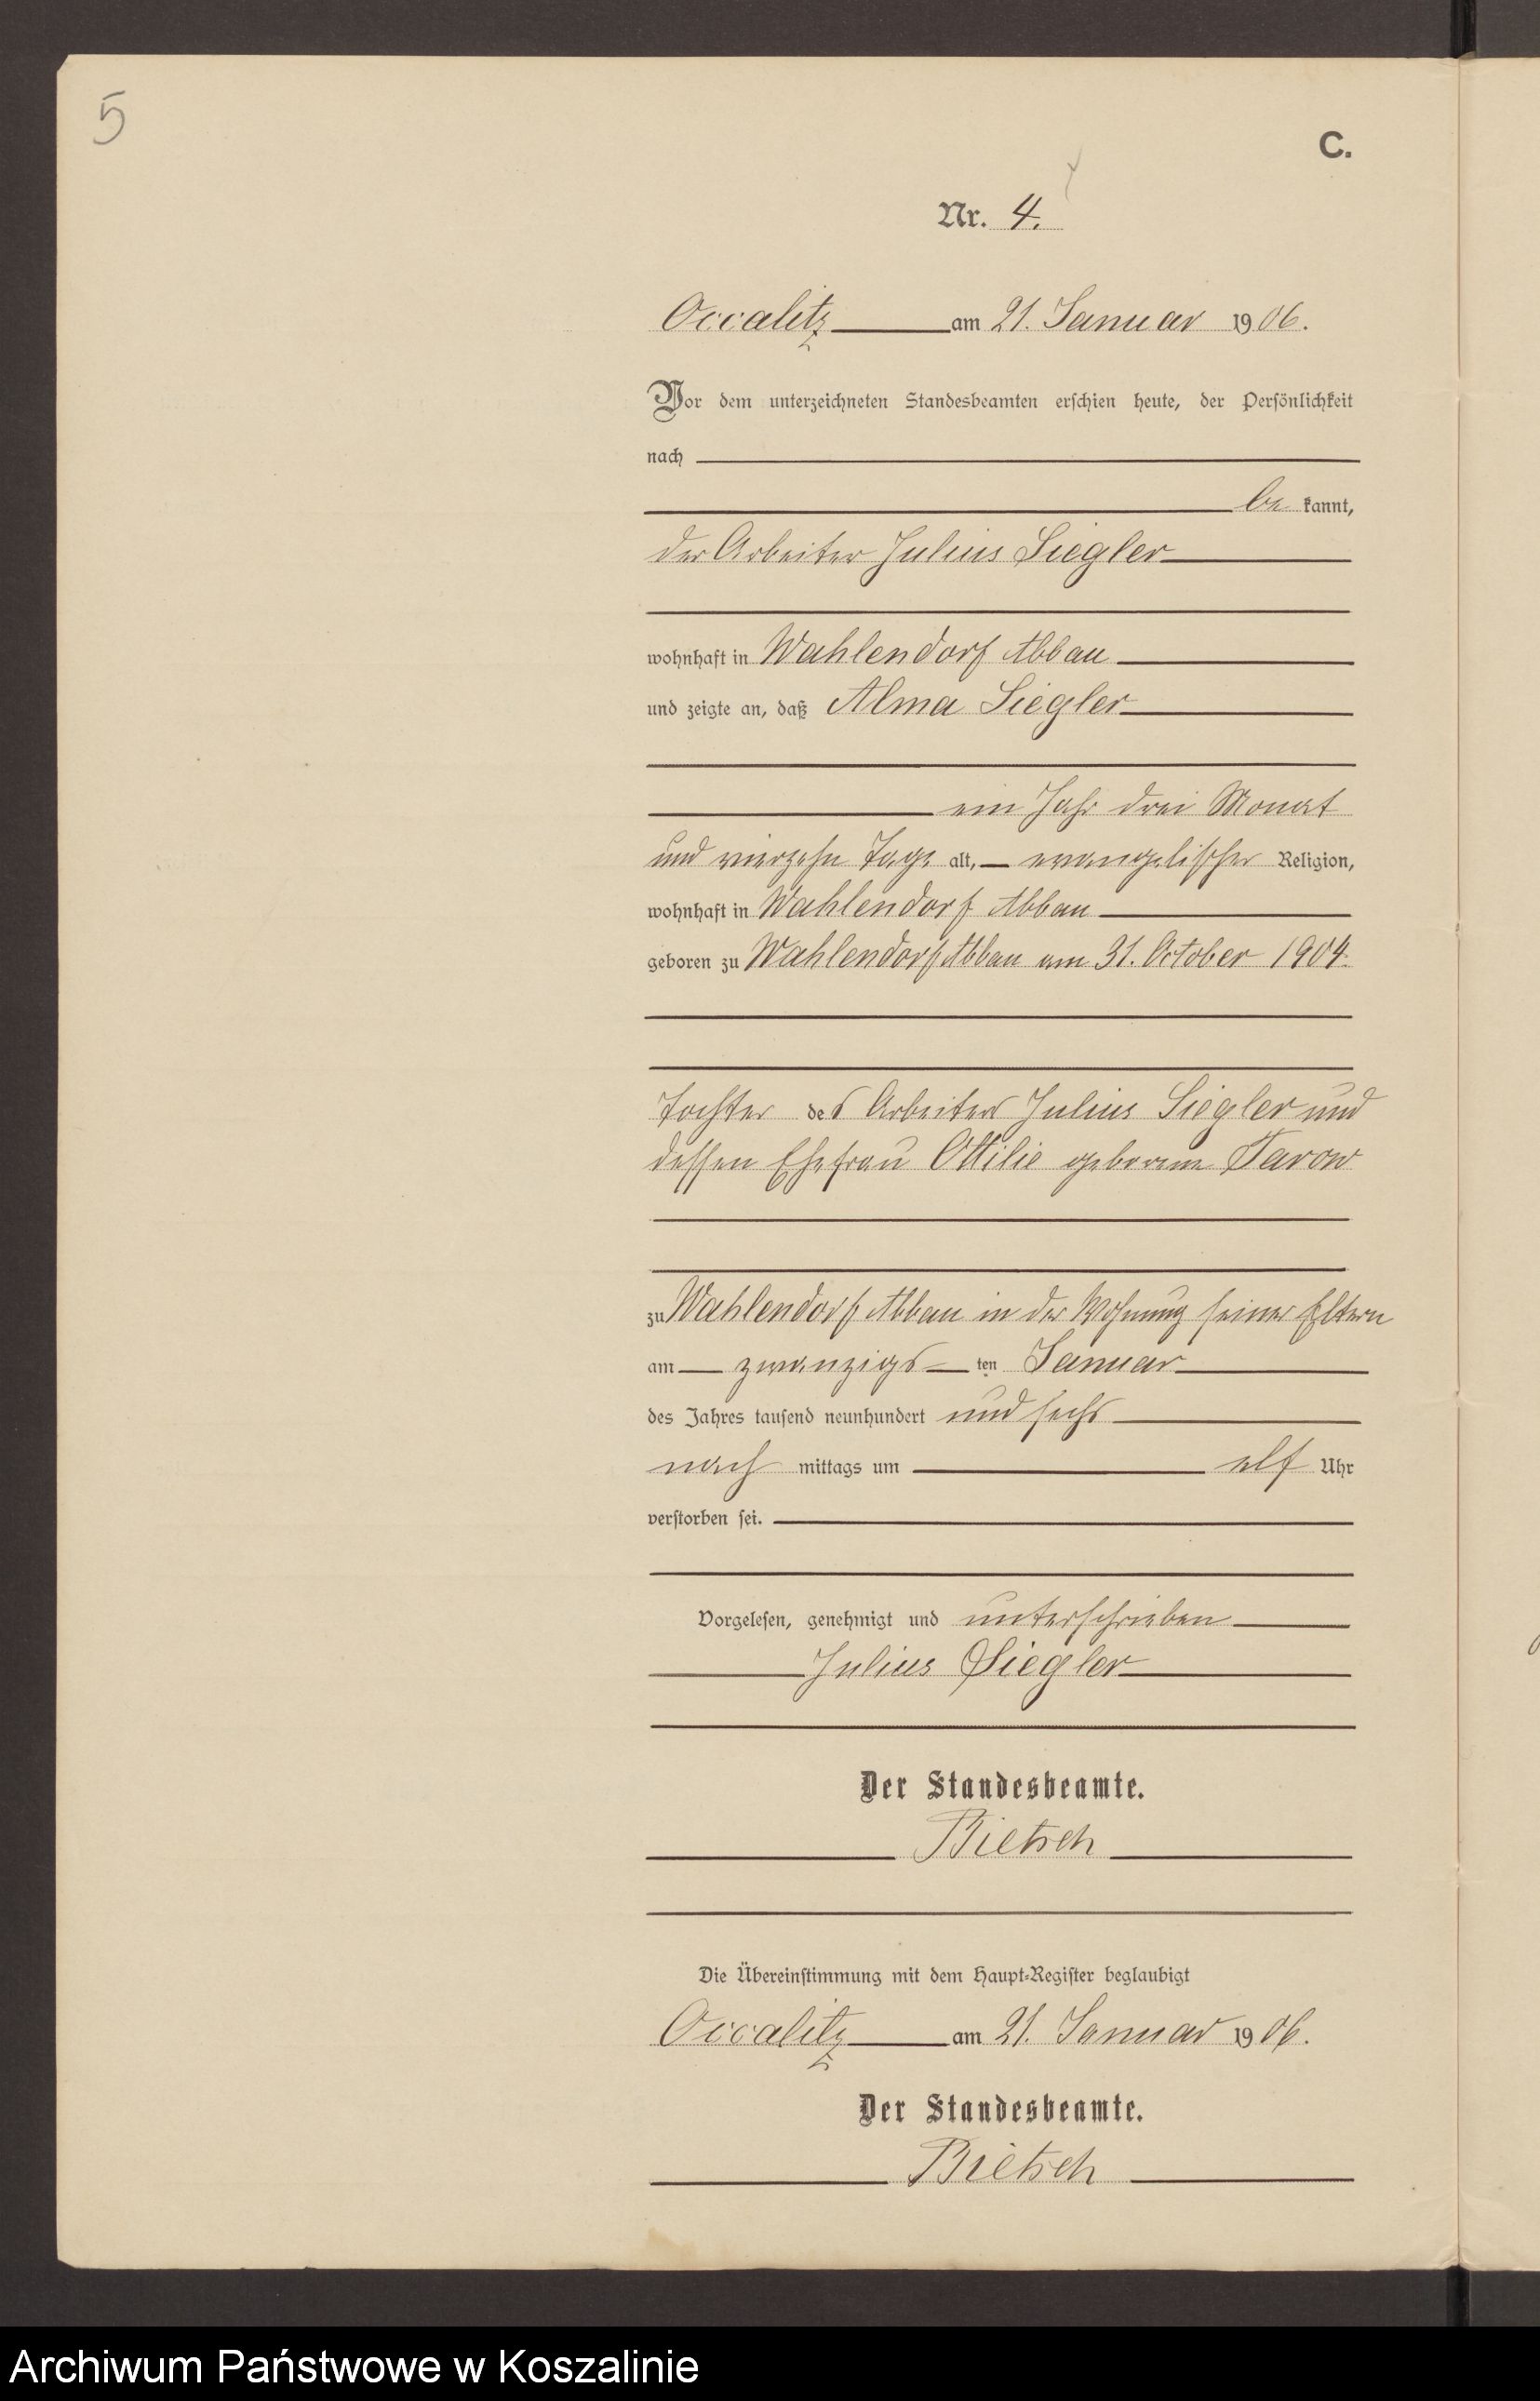 5
C.
Nr. 4.
Occalitz am 21. Januar 1906.
Vor dem unterzeichneten Standesbeamten erschien heute, der Persönlichkeit
nach
be kannt,
der Arbeiter Julius Siegler
wohnhaft in Wahlendorf Abbau
und zeigte an, daß Alma Siegler
ein Jahr drei Monat
und vierzehn Tage alt, evangelischer Religion,
wohnhaft in Wahlendorf Abbau
geboren zu Wahlendorf Abbau am 31. October 1904.
Tochter des Arbeiters Julius Siegler und
dessen Ehefrau Ottilie geborene Tarow
zu Wahlendorf Abbau in der Wohnung seiner Eltern
am zwanzigs ten Januar
des Jahres tausend neunhundert und sechs
nach mittags um elf Uhr
verstorben sei.
Vorgelesen, genehmigt und unterschrieben
Julius Siegler
Der Standesbeamte.
Bietsch
Die Übereinstimmung mit dem Haupt-Register beglaubigt
Occalitz am 21. Januar 1906.
Der Standesbeamte.
Bietsch
Archiwum Państwowe w Koszalinie